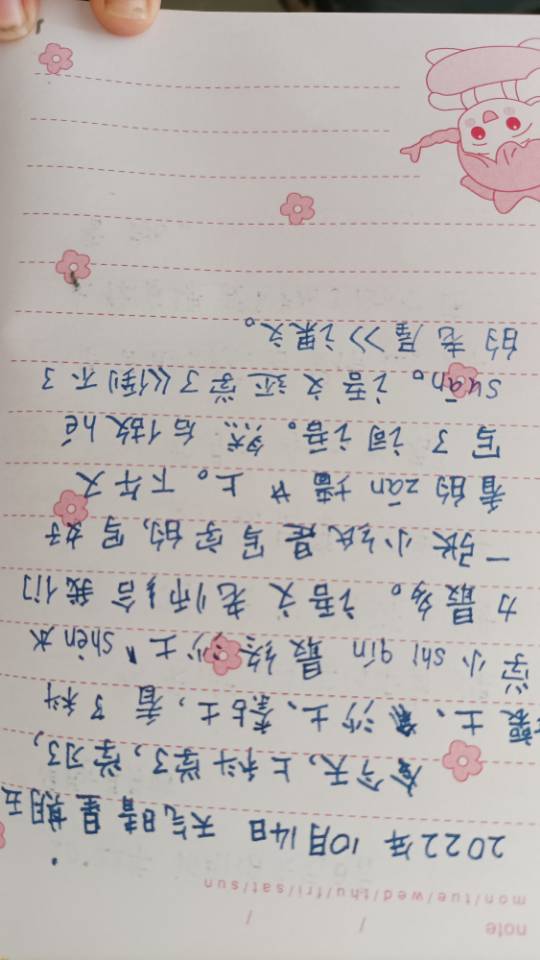 note / /
mon/tue/wed/thu/fri/sat/sun
2022年 10月14日 天气晴 星期五
今天,上科学了,学习了,
壤土、沙土、占土,看了科
学小shi qín 最终沙土"shèn水
力最多。语文老师合我们
一张小纸是写字的,写好
看的zān墙上。下午又
写了词语。然后做hé
suān。语文还学了《倒不了
的老屋》课文。